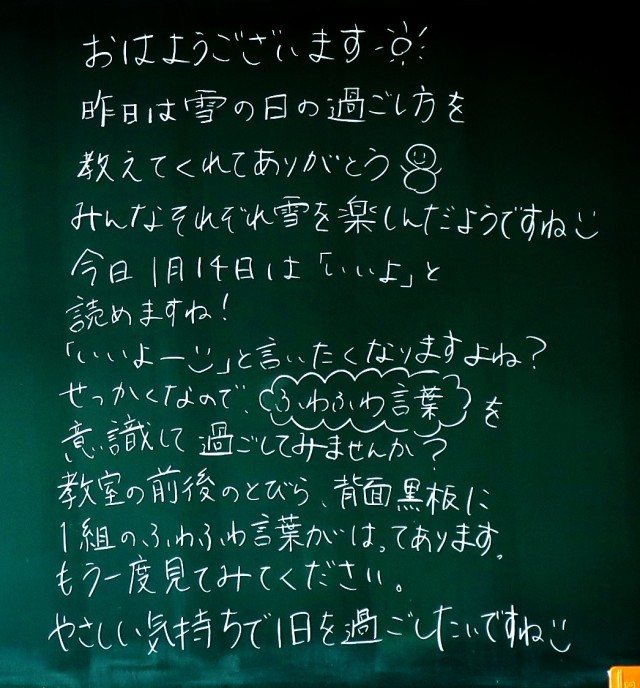 おはようございます
昨日は雪の日の過ごし方を
教えてくれてありがとう
みんなそれぞれ雪を楽しんだようですね
今日1月14日は「いいよ」と
読めますね!
「いいよー」と言いたくなりますよね?
せっかくなので、ふわふわ言葉を
意識して過ごしてみませんか?
教室の前後のとびら、背面黒板に
1組のふわふわ言葉がはってあります。
もう一度見てみてください。
やさしい気持ちで1日を過ごしたいですね